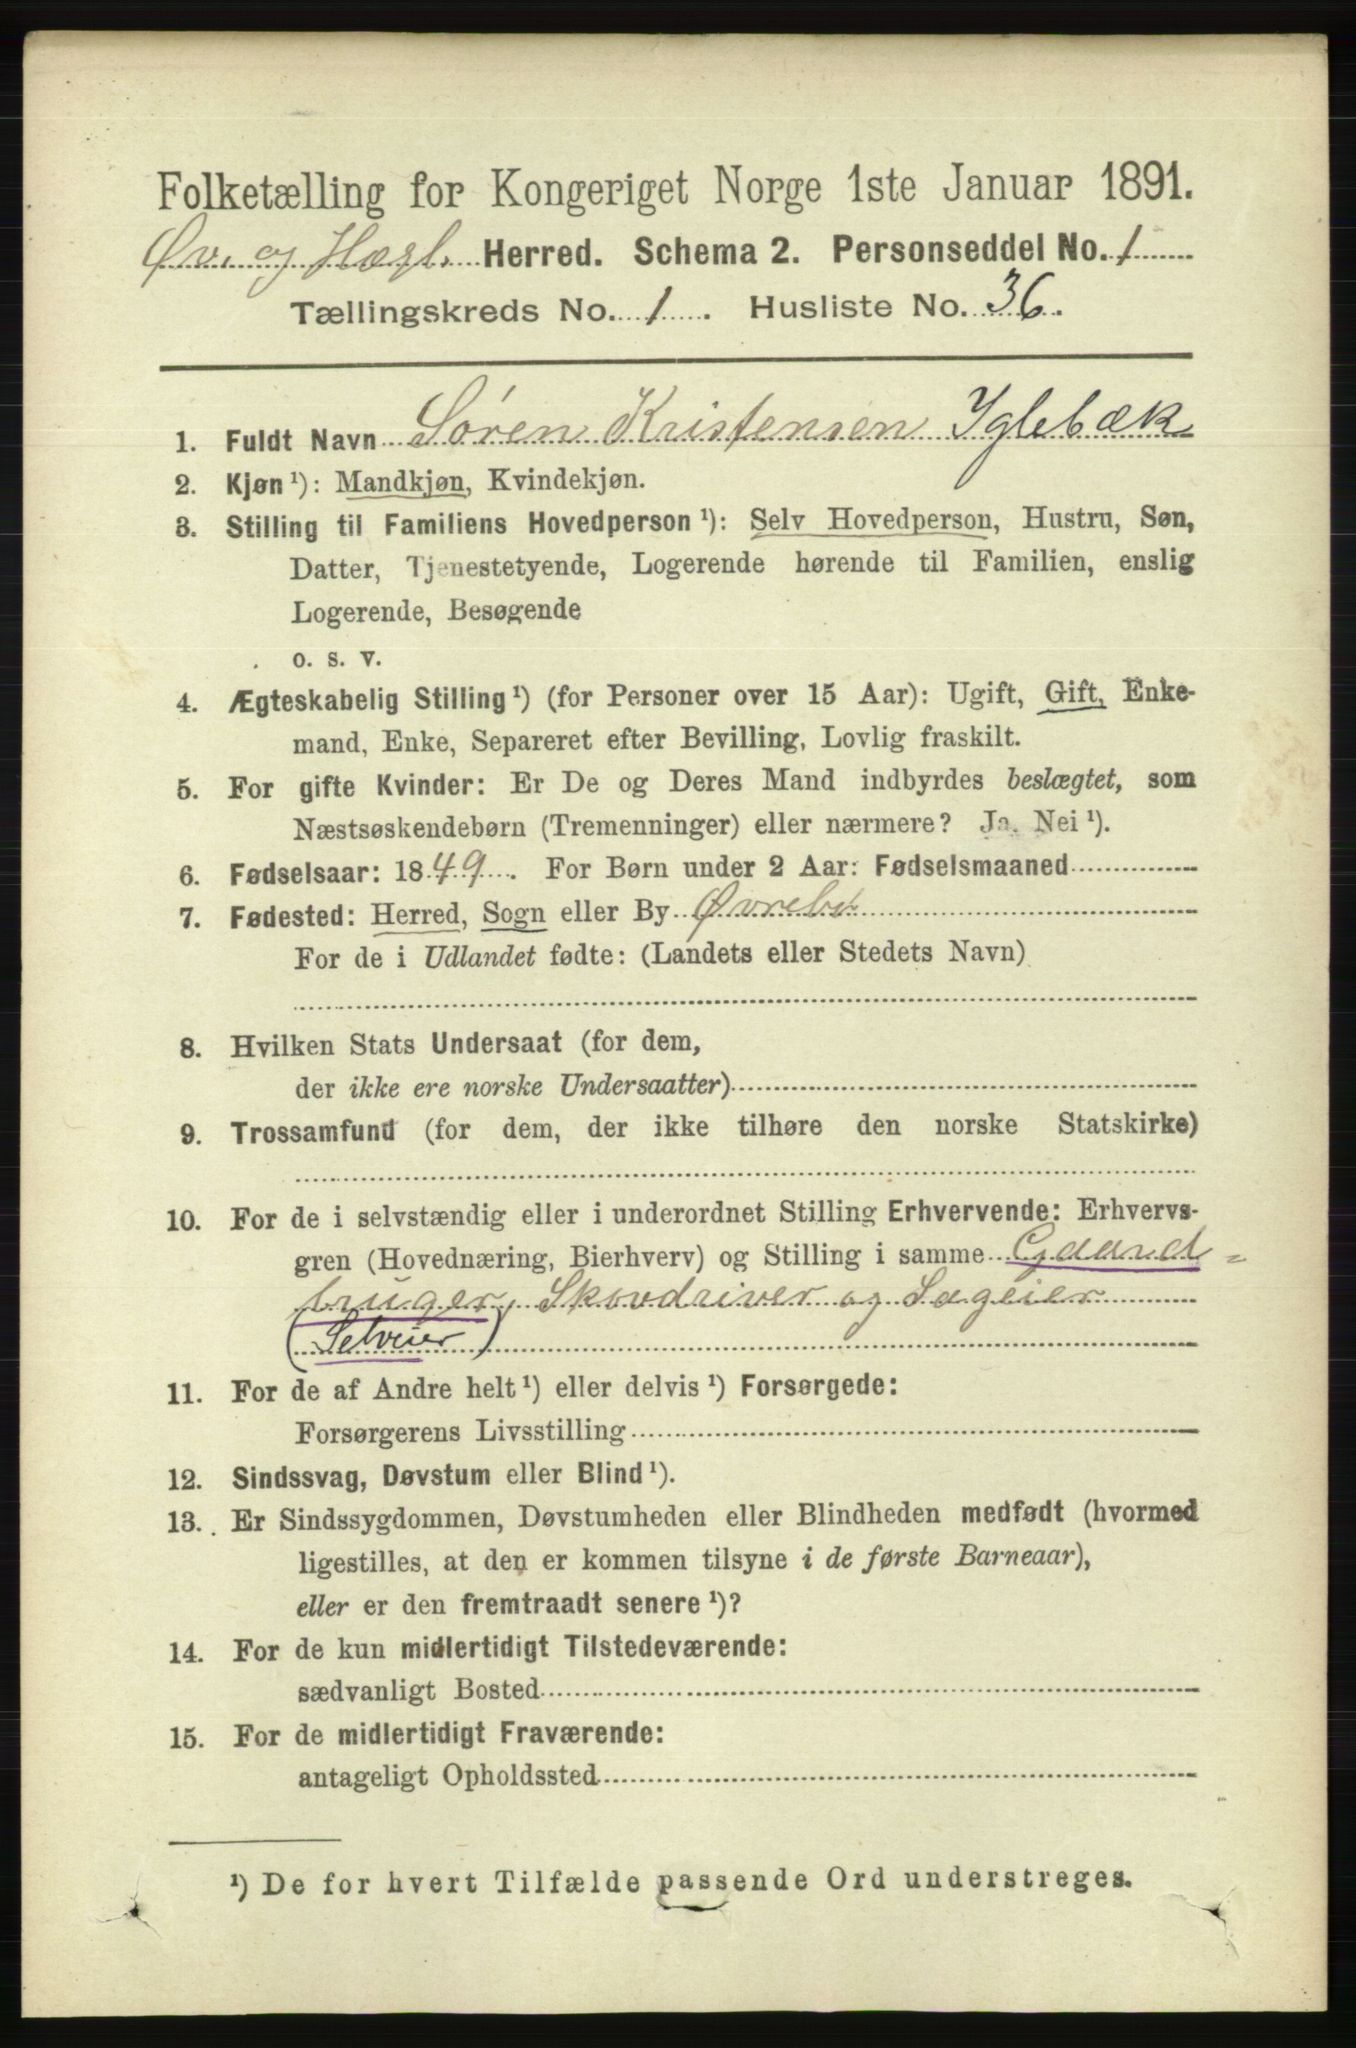 Folketælling for Kongeriget Norge 1ste Januar 1891.
Øv. og Hægl. Herred. Schema 2. Personseddel No. 1
Tællingskreds No. 1. Husliste No. 36.
1. Fuldt Navn Søren Kristensen Iglebæk
2. Kjøn ¹): Mandkjøn, Kvindekjøn.
3. Stilling til Familiens Hovedperson ¹): Selv Hovedperson, Hustru, Søn,
Datter, Tjenestetyende, Logerende hørende til Familien, enslig
Logerende, Besøgende
o. s. v.
4. Ægteskabelig Stilling ¹) (for Personer over 15 Aar): Ugift, Gift, Enke-
mand, Enke, Separeret efter Bevilling, Lovlig fraskilt.
5. For gifte Kvinder: Er De og Deres Mand indbyrdes beslægtet, som
Næstsøskendebørn (Tremenninger) eller nærmere? Ja. Nei ¹).
6. Fødselsaar: 1849. For Børn under 2 Aar: Fødselsmaaned
7. Fødested: Herred, Sogn eller By Øvrebø
For de i Udlandet fødte: (Landets eller Stedets Navn)
8. Hvilken Stats Undersaat (for dem,
der ikke ere norske Undersaatter)
9. Trossamfund (for dem, der ikke tilhøre den norske Statskirke)
10. For de i selvstændig eller i underordnet Stilling Erhvervende: Erhvervs-
gren (Hovednæring, Bierhverv) og Stilling i samme Gaard-
bruger, Skovdriver og Sageier
(Selveier)
11. For de af Andre helt ¹) eller delvis ¹) Forsørgede:
Forsørgerens Livsstilling
12. Sindssvag, Døvstum eller Blind ¹).
13. Er Sindssygdommen, Døvstumheden eller Blindheden medfødt (hvormed
ligestilles, at den er kommen tilsyne i de første Barneaar),
eller er den fremtraadt senere ¹)?
14. For de kun midlertidigt Tilstedeværende:
sædvanligt Bosted
15. For de midlertidigt Fraværende:
antageligt Opholdssted
¹) De for hvert Tilfælde passende Ord understreges.